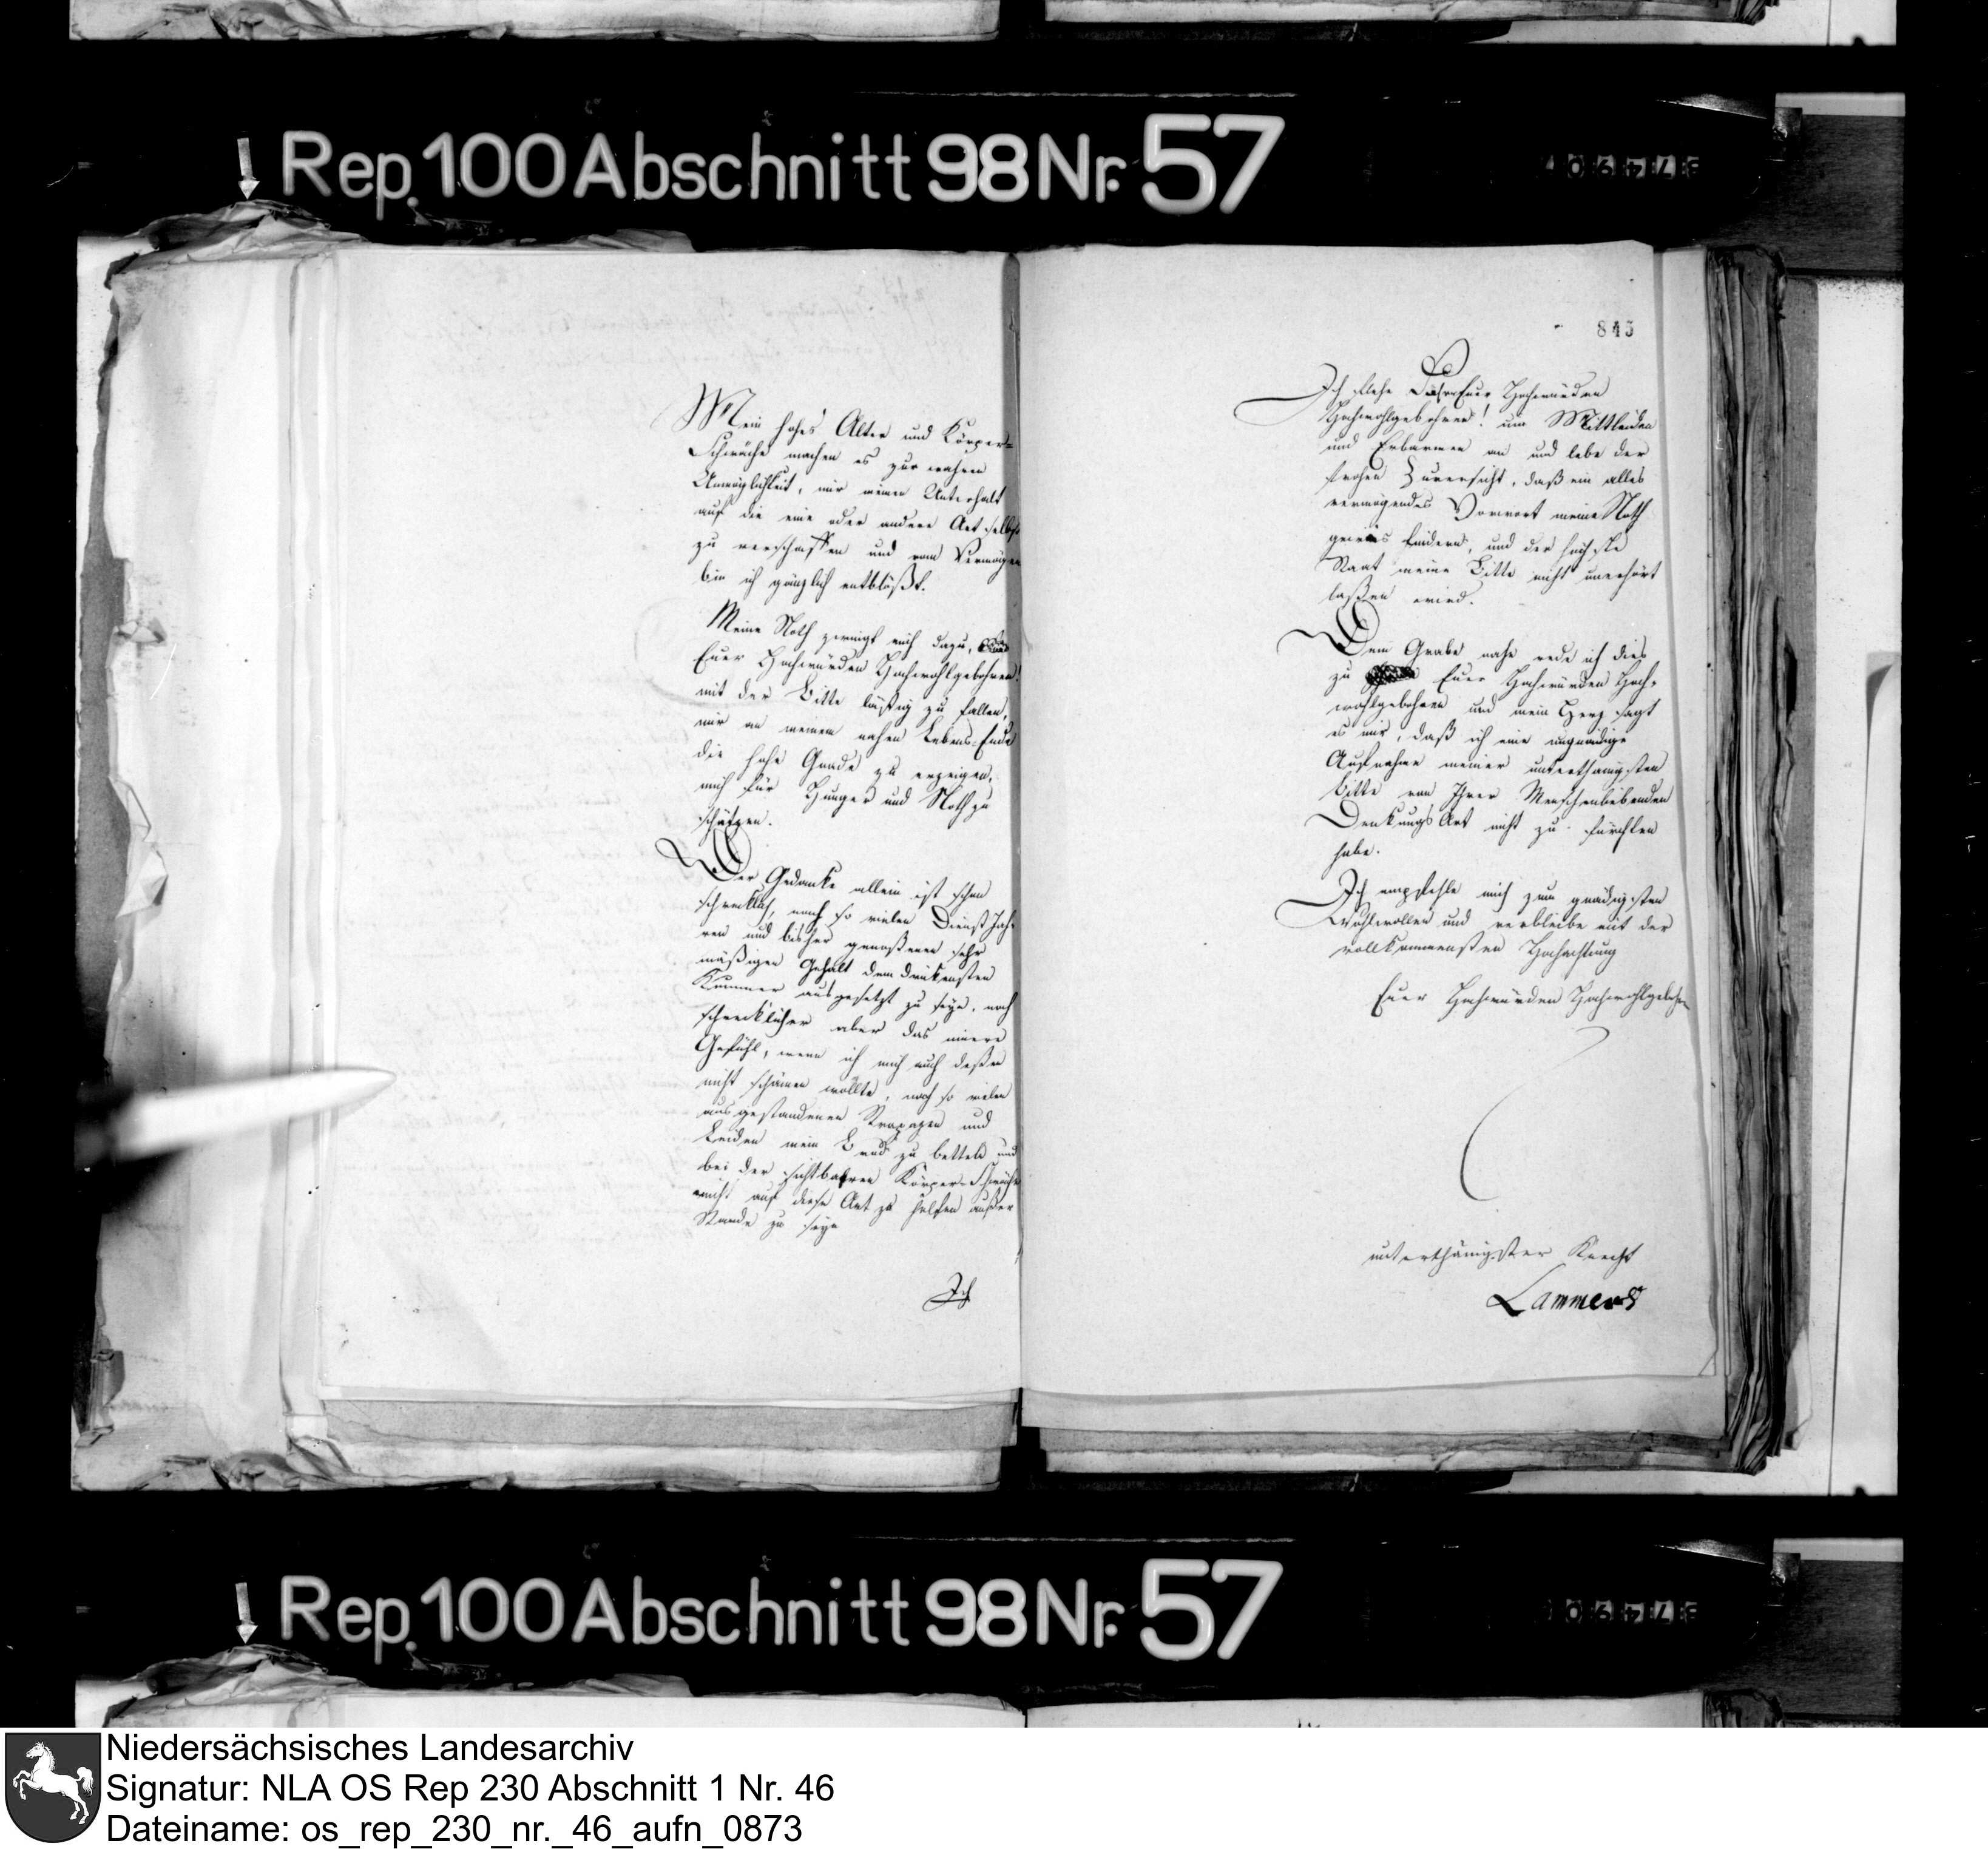 Rep. 100 Abschnitt 98 Nr. 57
843
Mein hohes Alter und Körper=
Schwäche machen es zur wahren
Unmöglichkeit, mir meinen Unterhalt
auf die eine oder andere Art selbst
zu verschaffen und vom Vermögen
bin ich gänzlich entblößt.
Meine Noth zwingt mich dazu,
Euer Hochwürden Hochwohlgebohren!
mit der Bitte läßtig zu fallen,
mir an meinem nahen Lebens-Ende
die hohe Gnade zu erzeigen,
mich für Hunger und Noth zu
schützen.
Der Gedanke allein ist schon
schrecklich, nach so vielen Dienst Jah-
ren und bisher genoßenen sehr
mäßigen Gehalt dem drückensten
Kummer ausgesetzt zu seyn, noch
schrecklicher aber das innere
Gefühl, wenn ich mich auch deßen
nicht schämen wollte, nach so vielen
ausgestandenen Strapazen und
Leiden mein Brod zu betteln und
bei der sichtbahren Körper-Schwäche
mich auf diese Art zu helfen außer
Stande zu seyn
Ich
Ich flehe Euer Hochwürden
Hochwohlgebohren! um Mittleiden
und Erbarmen an und lebe der
frohen Zuversicht, daß ein alles
vermögendes Vorwort meine Noth
gewis lindern, und der höchste
Staat meine Bitte nicht unerhört
laßen wird.
Dem Grabe nahe rede ich dies
zu Euer Hochwürden Hoch-
wohlgebohren und mein Herz sagt
es mir, daß ich eine ungnädige
Aufnahme meiner unterthänigsten
Bitte von Ihrer Menschenliebenden
Denkungs Art nicht zu fürchten
habe.
Ich empfehle mich zum gnädigsten
Wohlwollen und verbleibe mit der
vollkommensten Hochachtung
Euer Hochwürden Hochwohlgebohren
unterthänigster Knecht
Lammers
Rep. 100 Abschnitt 98 Nr. 57
Niedersächsisches Landesarchiv
Signatur: NLA OS Rep 230 Abschnitt 1 Nr. 46
Dateiname: os_rep_230_nr._46_aufn_0873